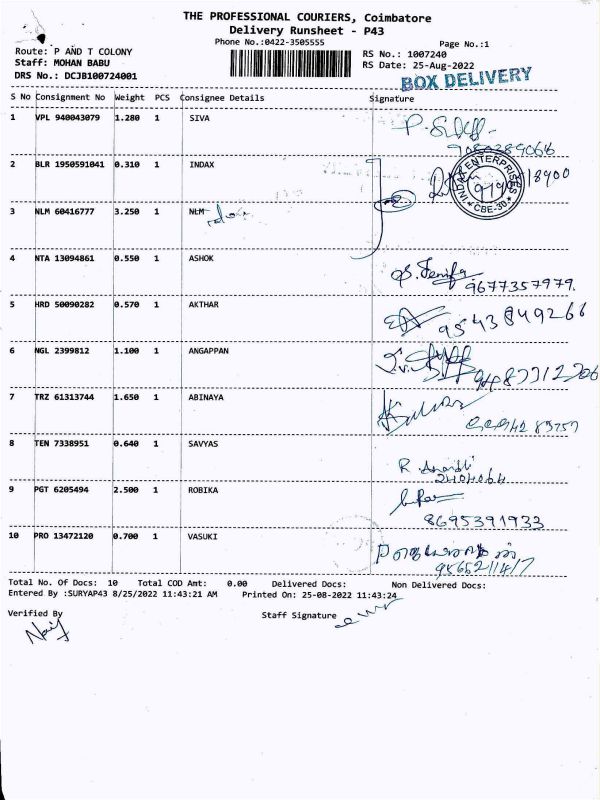 THE PROFESSIONAL COURIERS, Coimbatore
Delivery Runsheet - P43
Phone No.:0422-3505555
Page No.:1
Route: P AND T COLONY
RS No.: 1007240
Staff: MOHAN BABU
RS Date: 25-Aug-2022
DRS No.: DCJB100724001
BOX DELIVERY
S No Consignment No Weight PCS Consignee Details Signature
1 VPL 940043079 1.280 1 SIVA
2 BLR 1950591041 0.310 1 INDAX
INDAX ENTERPRISES * CBE-30 *
3 NLM 60416777 3.250 1 NLM
4 NTA 13094861 0.550 1 ASHOK
9677357979.
5 HRD 50090282 0.570 1 AKTHAR
9543849266
6 NGL 2399812 1.100 1 ANGAPPAN
7 TRZ 61313744 1.650 1 ABINAYA
8 TEN 7338951 0.640 1 SAVYAS
9 PGT 6205494 2.500 1 ROBIKA
8695391933
10 PRO 13472120 0.700 1 VASUKI
Total No. Of Docs: 10 Total COD Amt: 0.00 Delivered Docs: Non Delivered Docs:
Entered By :SURYAP43 8/25/2022 11:43:21 AM Printed On: 25-08-2022 11:43:24
Verified By Staff Signature